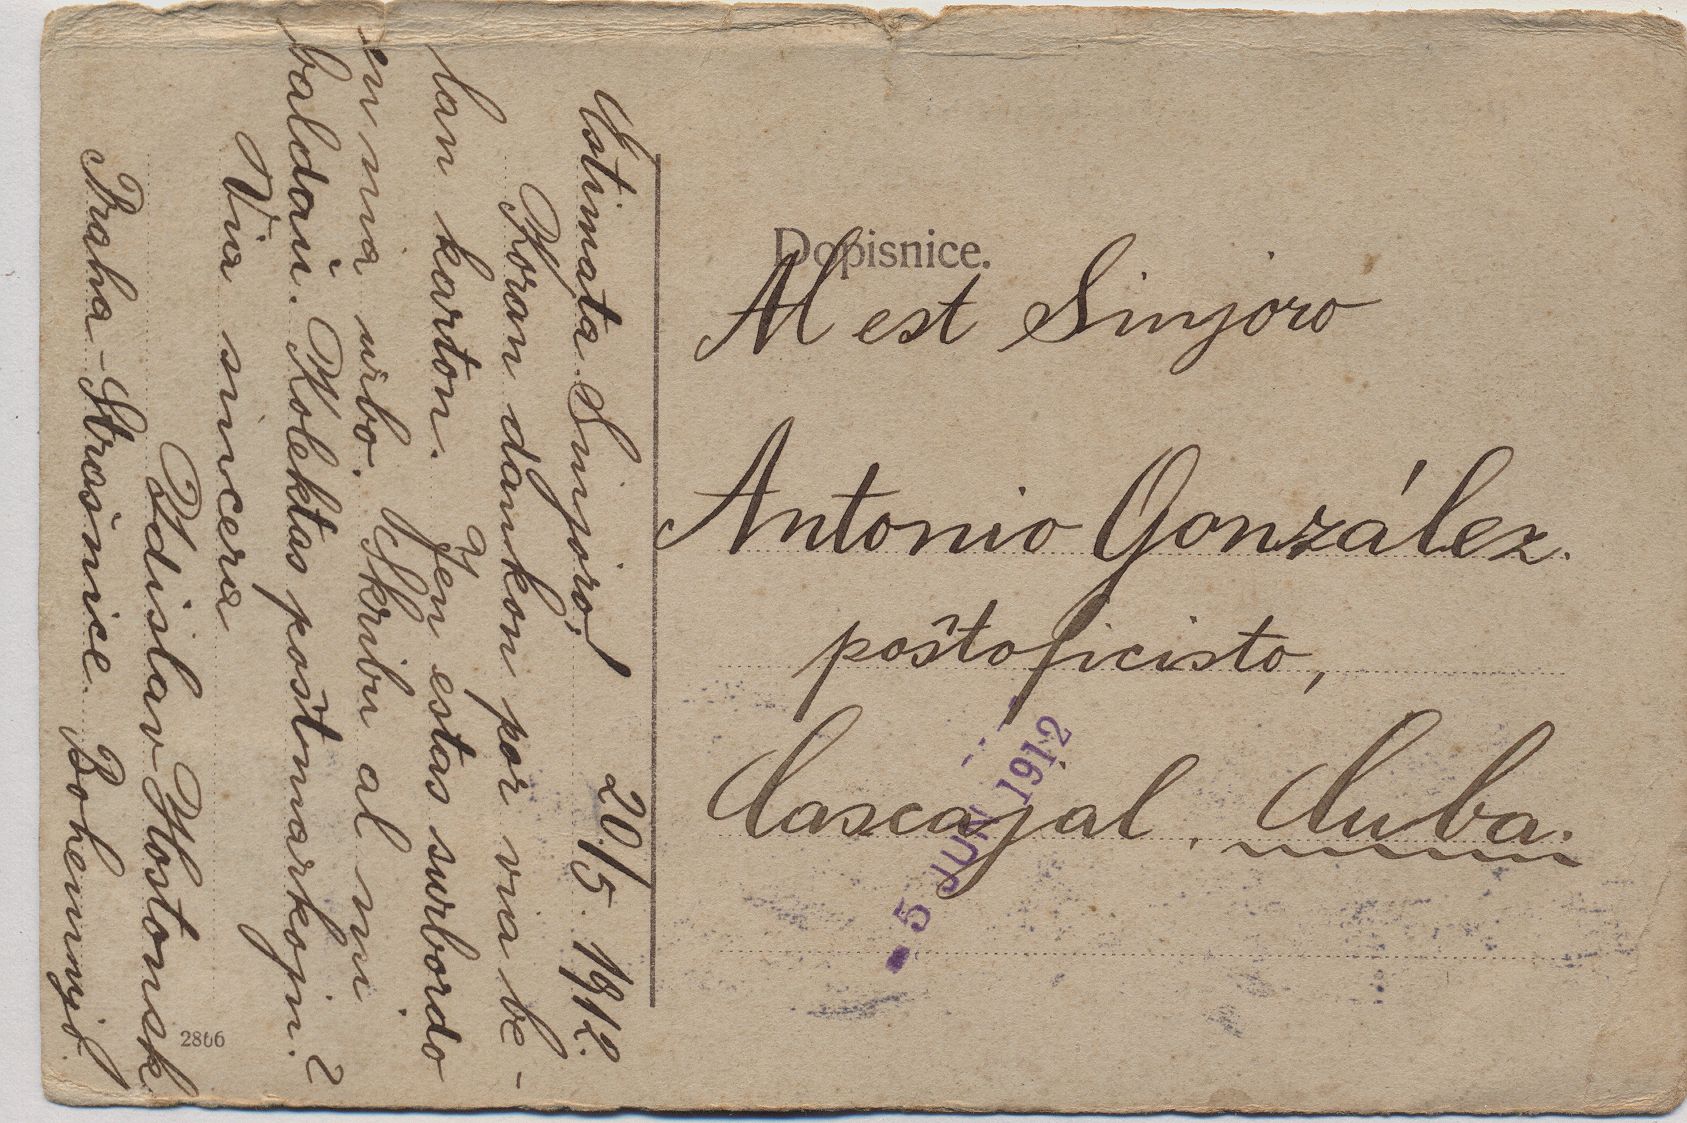 Estimata Sinjoro! 20/5. 1912.
Koran dankon por via be-
lan karton. Jen estas surbordo
en nia urbo. Skribu al mi
baldaŭ. Kolektas poŝtmarkojn?
Via sincera
Zdislav Hostonsk
Praha-Strašnice. Bohemujo.
2866
Dopisnice.
Al est Sinjoro
Antonio González.
poŝtoficisto,
Cascajal. Cuba.
- 5 JUN 1912